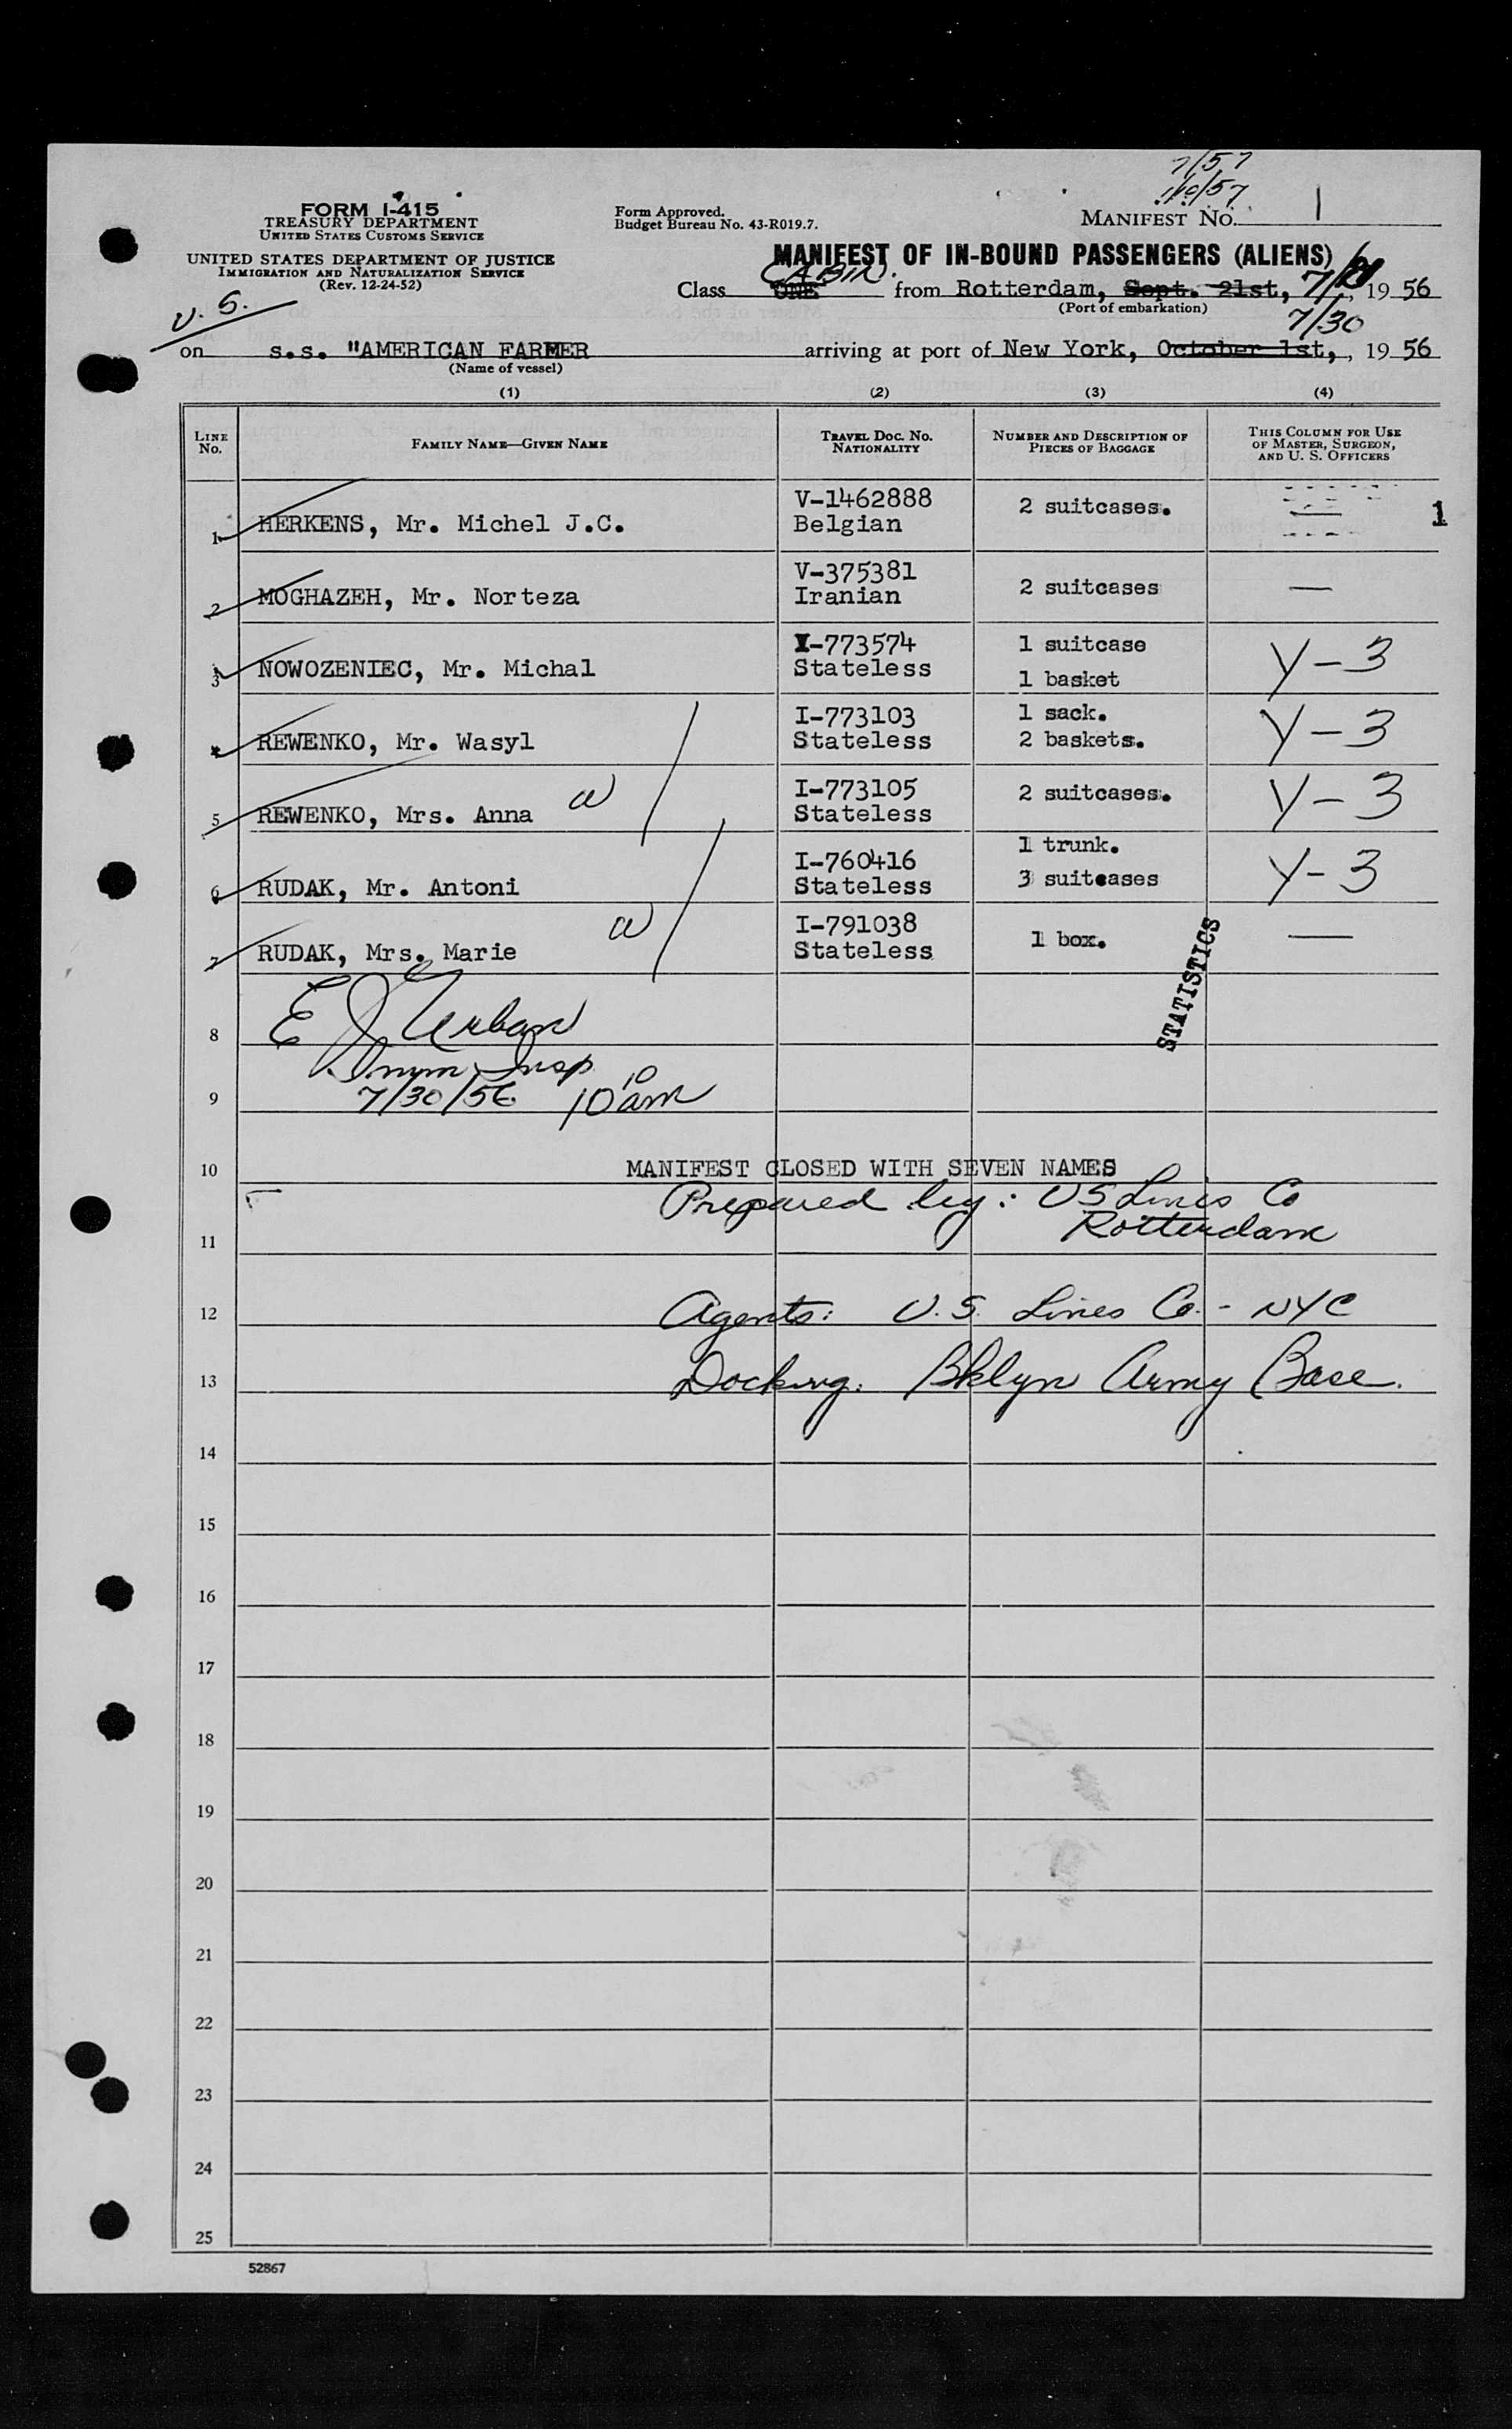 7/57
MANIFEST NO. 1
FORM I-415
TREASURY DEPARTMENT
UNITED STATES CUSTOMS SERVICE
Form Approved.
Budget Bureau No. 43-R019.7.
UNITED STATES DEPARTMENT OF JUSTICE
IMMIGRATION AND NATURALIZATION SERVICE
(Rev. 12-24-52)
MANIFEST OF IN-BOUND PASSENGERS (ALIENS)
CABIN.
Class ONE from Rotterdam, Sept. 21st, 7/21, 19 56
(Port of embarkation)
U. S.
7/30
on s.s. "AMERICAN FARMER arriving at port of New York, October 1st, , 19 56
(Name of vessel)
(1) (2) (3) (4)
LINE NO. FAMILY NAME—GIVEN NAME TRAVEL DOC. NO. NATIONALITY NUMBER AND DESCRIPTION OF PIECES OF BAGGAGE THIS COLUMN FOR USE OF MASTER, SURGEON, AND U. S. OFFICERS
1 HERKENS, Mr. Michel J.C. V-1462888 Belgian 2 suitcases. — 1
2 MOGHAZEH, Mr. Norteza V-375381 Iranian 2 suitcases —
3 NOWOZENIEC, Mr. Michal I-773574 Stateless 1 suitcase 1 basket Y-3
4 REWENKO, Mr. Wasyl I-773103 Stateless 1 sack. 2 baskets. Y-3
5 REWENKO, Mrs. Anna W I-773105 Stateless 2 suitcases. Y-3
6 RUDAK, Mr. Antoni I-760416 Stateless 1 trunk. 3 suitcases Y-3
7 RUDAK, Mrs. Marie W I-791038 Stateless 1 box. —
STATISTICS
8 E J Urban
Imm Insp
9 7/30/56 10 10 am
10 MANIFEST CLOSED WITH SEVEN NAMES
Prepared by: US Lines Co
11 Rotterdam
12 Agents: U.S. Lines Co. - NYC
13 Docking: Bklyn Army Base.
14
15
16
17
18
19
20
21
22
23
24
25
52867